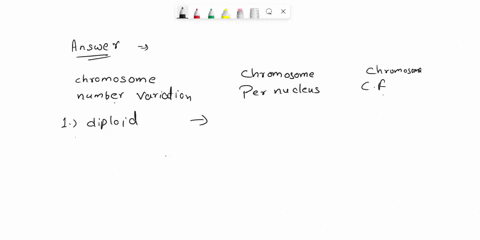 Answer →
chromosome number variation
Chromosome Per nucleus
Chromosome C.F
1.) diploid →